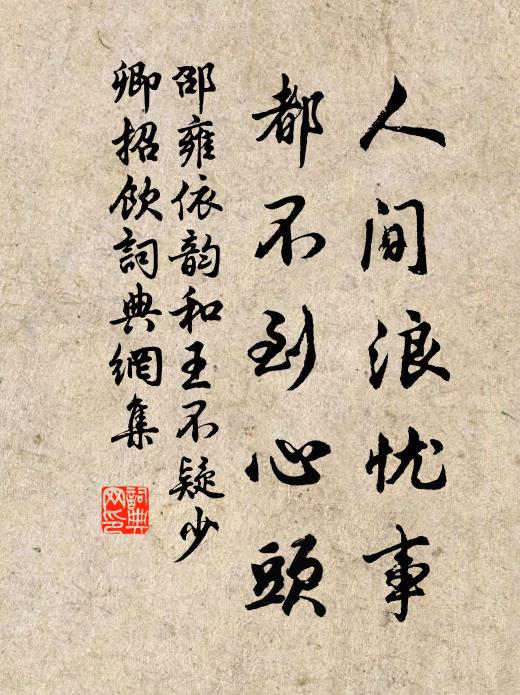 人间浪忧事
都不到心頭
邵雍依韵和王不疑少
卿招飲詞典網集
詞典
网印